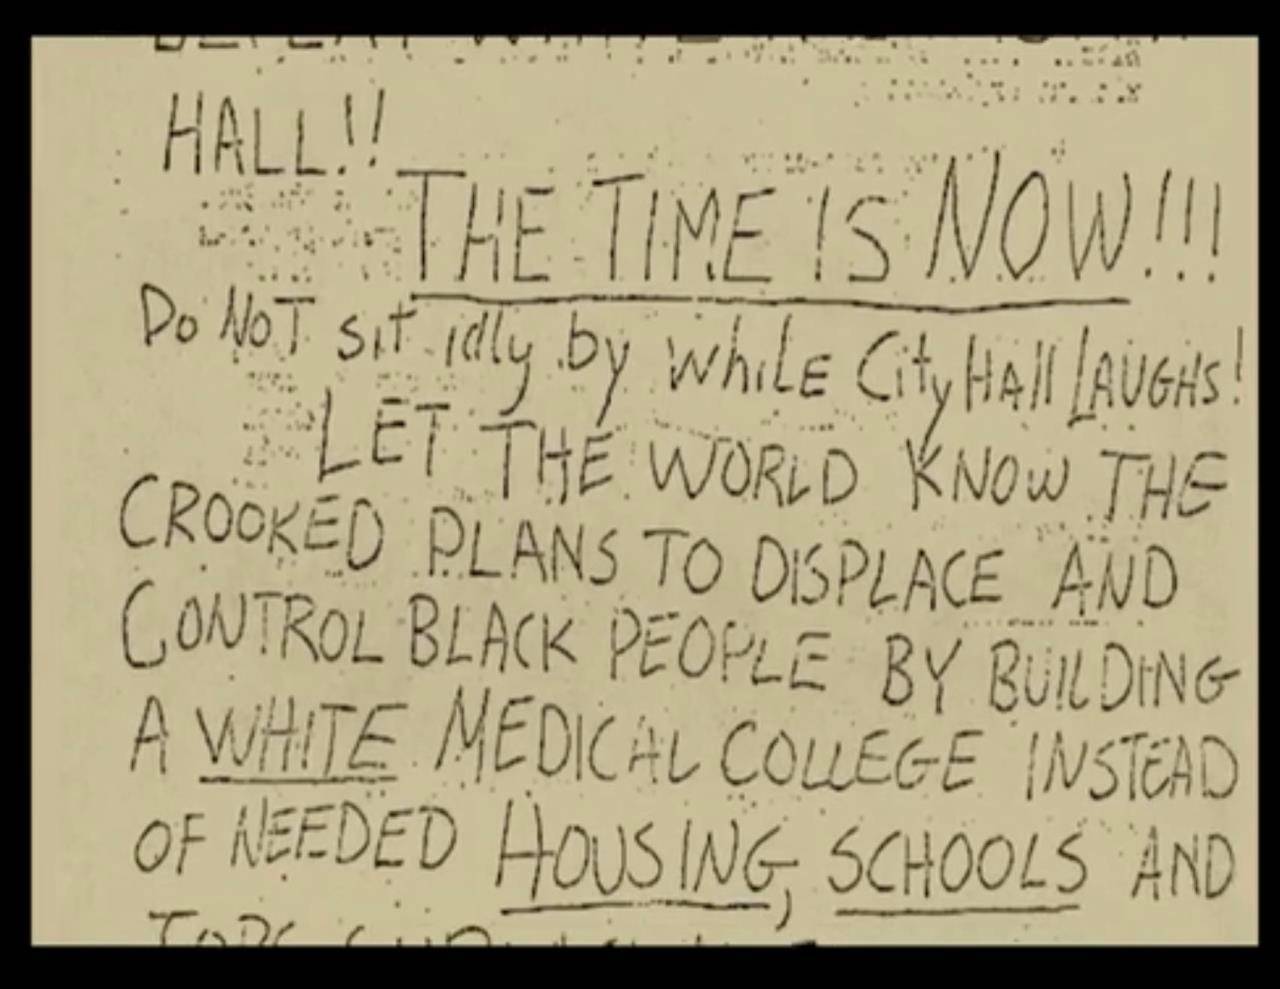 HALL!!
THE TIME IS NOW!!!
Do NOT sit idly by whiLE City HAll LAUGHS!
LET THE WORLD KNOW THE
CROOKED PLANS TO DISPLACE AND
CONTROL BLACK PEOPLE BY BUILDING
A WHITE MEDICAL COLLEGE INSTEAD
OF NEEDED HOUSING, SCHOOLS AND